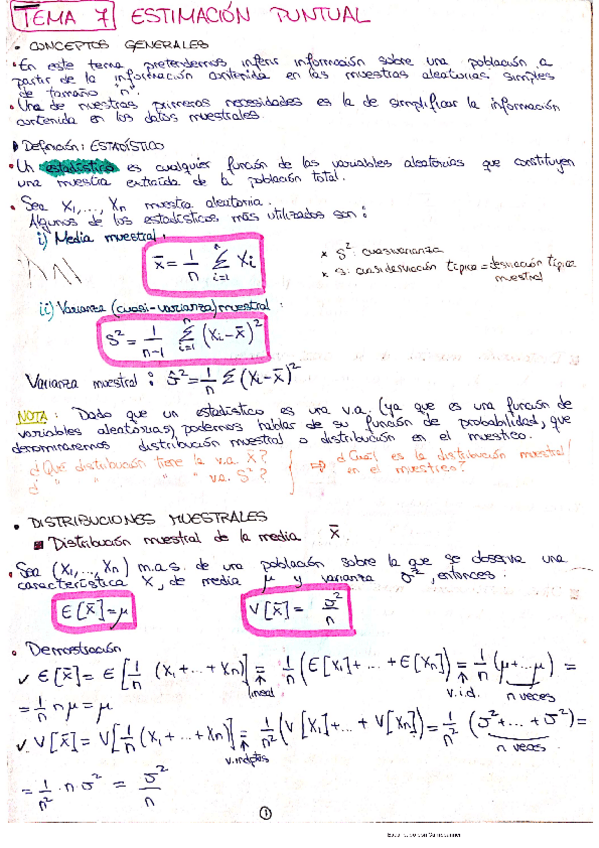 TEMA 7 ESTIMACIÓN PUNTUAL
• CONCEPTOS GENERALES
• En este tema pretendemos inferir información sobre una población a
partir de la información contenida en las muestras aleatorias simples
de tamaño "n".
• Una de nuestras primeras necesidades es la de simplificar la información
contenida en los datos muestrales.
Definición: ESTADÍSTICO
• Un estadístico es cualquier función de las variables aleatorias que constituyen
una muestra extraída de la población total.
• Sea X₁,..., Xn muestra aleatoria.
Algunos de los estadísticos más utilizados son:
i) Media muestral:
x̄ = 1/n Σ_{i=1}^{n} Xi
* S²: cuasivarianza
* S: cuasidesviación típica = desviación típica
muestral
ii) Varianza (cuasi-varianza) muestral:
S² = 1/(n-1) Σ_{i=1}^{n} (Xi - x̄)²
Varianza muestral: Ŝ² = 1/n Σ (Xi - x̄)²
NOTA: Dado que un estadístico es una v.a. (ya que es una función de
variables aleatorias) podemos hablar de su función de probabilidad, que
denominaremos distribución muestral o distribución en el muestreo.
¿Qué distribución tiene la v.a. x̄?
¿ " " " v.a. S²?
⇒ ¿Cuál es la distribución muestral/
en el muestreo?
• DISTRIBUCIONES MUESTRALES
Distribución muestral de la media x̄.
• Sea (X₁,..., Xn) m.a.s. de una población sobre la que se observa una
característica X, de media μ y varianza σ², entonces:
E[x̄] = μ V[x̄] = σ²/n
• Demostración
✓ E[x̄] = E[1/n (X₁+...+Xn)] = 1/n (E[X₁]+...+E[Xn]) = 1/n (μ+...μ) =
lineal v.i.d. n veces
= 1/n nμ = μ
✓ V[x̄] = V[1/n (X₁+...+Xn)] = 1/n² (V[X₁]+...+V[Xn]) = 1/n² (σ²+...+σ²) =
v.indptes n veces
= 1/n² · n · σ² = σ²/n
1